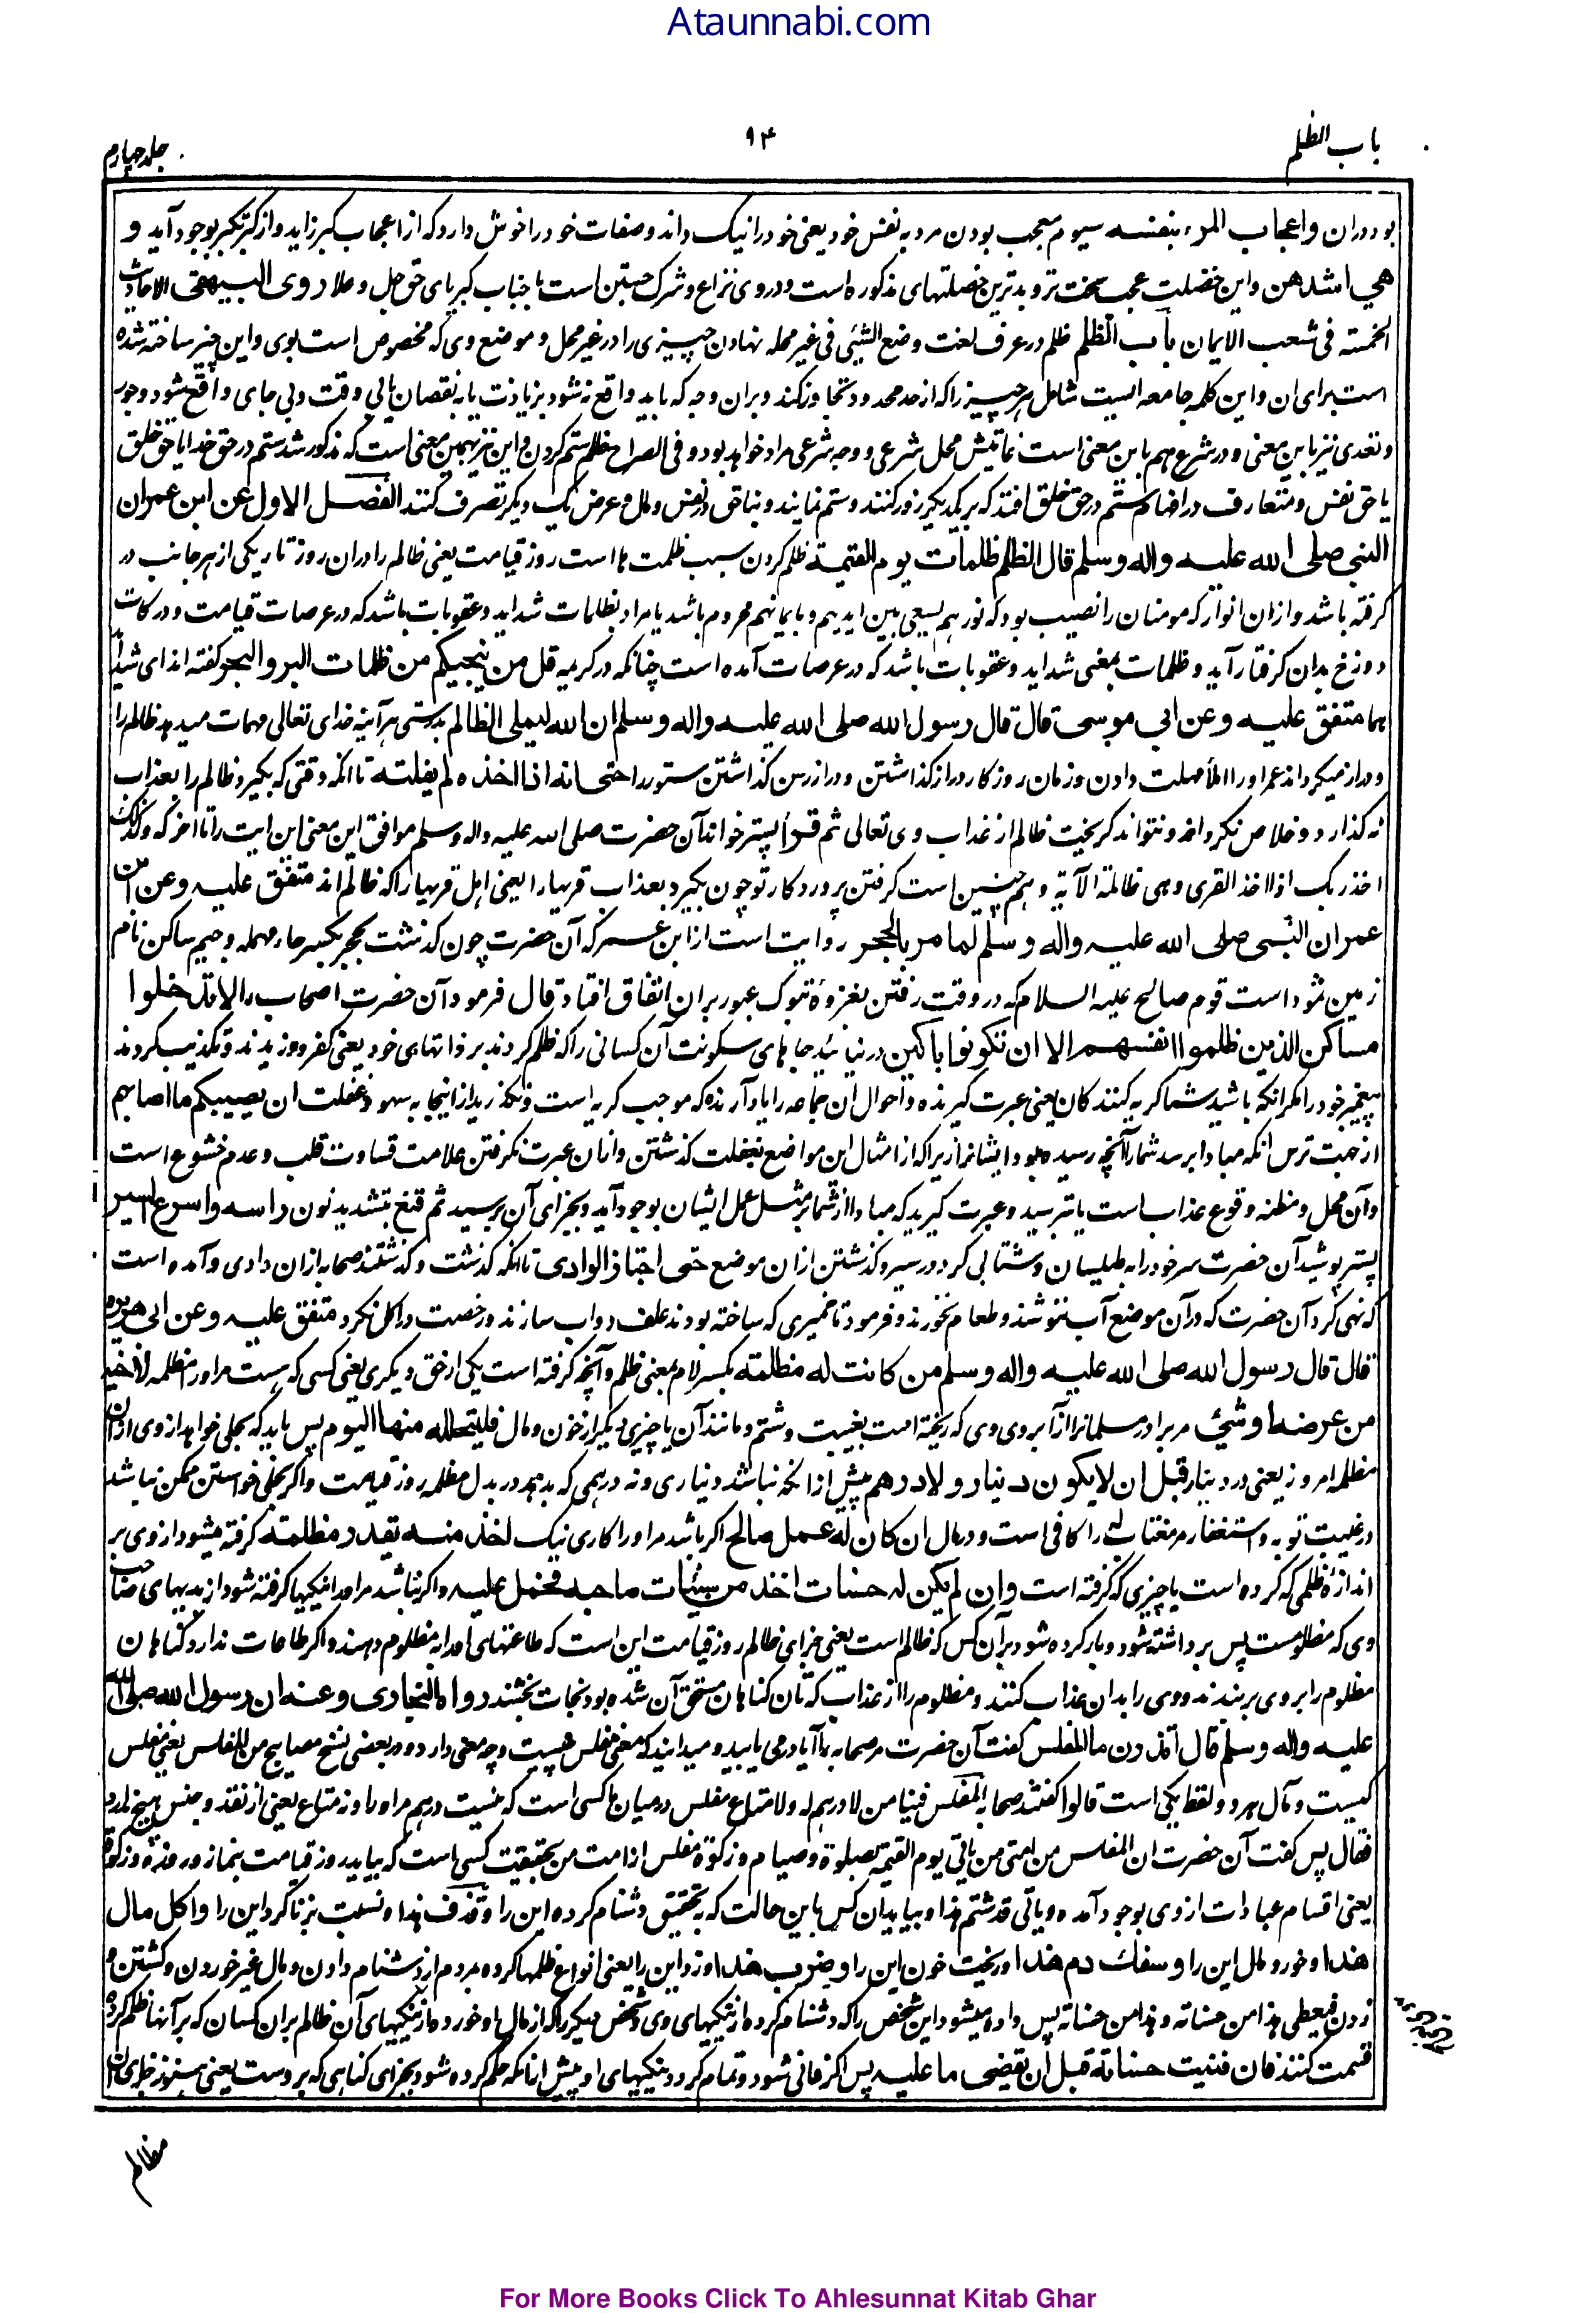 Ataunnabi.com
باب الظلم
۹۴
جلد چهارم
بود دران و اعجاب المرء بنفسه سیوم معجب بودن مرد به نفس خود یعنی خود را نیک داند و صفات خود را خوش دارد که از اعجاب کبر زاید و از کبر تکبر بوجود آید و
هي اشدهن و این خصلت عجب سخت تر و بدترین خصلتهای مذکوره است و در وی نزاع و شرک جستن است با جناب کبریای حق جل و علا روی البیهقی الاحادیث
الخمسة فی شعب الایمان باب الظلم ظلم در عرف لغت وضع الشئی فی غیر محله نهادن چیزی را در غیر محل و موضع وی که مخصوص است بوی و این چیز ساخته شده
است برای ان و این کلمه جامعه ایست شامل هر چیز را که از حد محدود تجاوز کند و بران وجه که باید واقع نشود بزیادت یا به نقصان یا بی وقت و بی جای واقع شود و جور
و تعدی نیز باین معنی و در شرع هم باین معنی است غایتش محل شرعی و وجه شرعی مراد خواهد بود و فی الصراح ظلم ستم کردن و این نیز بهمین معنی است که مذکور شد ستم در حق خدا یا حق خلق
یا حق نفس و متعارف در اخبار ستم در حق خلق افتد که بر یکدیگر زور کنند و ستم نمایند و بناحق در نفس و مال و عرض یک دیگر تصرف کنند الفصل الاول عن ابن عمر ان
النبی صلی الله علیه واله وسلم قال الظلم ظلمات یوم القیمة ظلم کردن سبب ظلمت ها است روز قیامت یعنی ظالم را دران روز تاریکی از هر جانب در
گرفته باشد و ازان انوار که مومنان را نصیب بود که نورهم یسعی بین ایدیهم و بایمانهم محروم باشد یا مراد بظلمات شداید و عقوبات باشد که در عرصات قیامت و درکات
دوزخ بدان گرفتار آید و ظلمات بمعنی شداید و عقوبات باشد که در عرصات آمده است چنانکه در کریمه قل من ینجیکم من ظلمات البر والبحر گفته اند ای شداید
هما متفق علیه وعن ابی موسی قال قال رسول الله صلی الله علیه واله وسلم ان الله لیملی الظالم بدرستی هر آینه خدای تعالی مهلت میدهد ظالم را
و دراز میگرداند عمر او را املأ مهلت دادن و زمان روزگار دراز گذاشتن و دراز رسن گذاشتن ستور را حتی انه اذا اخذه لم یفلته تا آنکه وقتی که بگیرد ظالم را بعذاب
نه گذارد و خلاص نگرداند و نتواند گریخت ظالم از عذاب وی تعالی ثم قرأ پستر خواند آن حضرت صلی الله علیه واله وسلم موافق این معنی این ایت را تا آخر که وکذلک
اخذ ربک اذا اخذ القری وهی ظالمة الآیة و هم چنین است گرفتن پروردگار تو چون بگیرد بعذاب قریها را یعنی اهل قریها را که ظالم اند متفق علیه وعن ابن
عمر ان النبی صلی الله علیه واله وسلم لما مر بالحجر روایت است از ابن عمر که آن حضرت چون گذشت بحجر بکسر حاء مهمله و جیم ساکن نام
زمین ثمود است قوم صالح علیه السلام که در وقت رفتن بغزوه تبوک عبور بران اتفاق افتاد قال فرمود آن حضرت اصحاب را لاتدخلوا
مساکن الذین ظلموا انفسهم الا ان تکونوا باکین در نیائید جاهای سکونت آن کسانی را که ظلم کردند بر ذاتهای خود یعنی کفر ورزیدند و تکذیب کردند
پیغمبر خود را مگر انکه باشید شما گریه کنندگان یعنی عبرت گیرنده و احوال ان جماعه را یاد آرنده که موجب گریه است و نگذرید از اینجا به سهو و غفلت ان یصیبکم ما اصابهم
از جهت ترس انکه مبادا برسد شما را آنچه رسیده بود ایشانرا زیرا که از امثال این مواضع بغفلت گذشتن و ازان عبرت نگرفتن علامت قساوت قلب و عدم خشوع است
و آن محل و مظنه وقوع عذاب است یا بترسید و عبرت گیرید که مبادا از شما بر مثل عمل ایشان بوجود آید و بجزای آن برسید ثم قنع بتشدید نون راسه واسرع السیر
پستر پوشید آن حضرت سر خود را به طیلسان و شتابی کرد در سیر و گذشتن ازان موضع حتی اجتاز الوادی تا انکه گذشت و گذشتند صحابه ازان وادی و آمده است
که نهی کرد آن حضرت که دران موضع آب ننوشند و طعام نخورند و فرمود تا خمیری که ساخته بودند علف دواب سازند و رخصت در اکل نکرد متفق علیه وعن ابی هریرة
قال قال رسول الله صلی الله علیه واله وسلم من کانت له مظلمة بکسر لام بمعنی ظلم و آنچه گرفته است یکی از حق دیگری یعنی کسی که هست مر او را مظلمه لاخیه
من عرضه او شئ مر برادر مسلمانرا از آبروی وی که ریخته است بغیبت و شتم و مانند آن یا چیزی دیگر از خون و مال فلیتحلله منها الیوم پس باید که بحلی خواهد از وی ازان
مظلمه امروز یعنی در دنیا قبل ان لایکون دینار ولا درهم پیش ازانکه نباشد دیناری و نه درهمی که بدهد در بدل مظلمه روز قیامت و اگر بحلی خواستن ممکن نباشد
در غیبت توبه و استغفار مر مغتاب له را کافی است و در مال ان کان له عمل صالح اگر باشد مر او را کاری نیک اخذ منه بقدر مظلمته گرفته میشود از وی بر
اندازه ظلمی که کرده است یا چیزی که گرفته است وان لم یکن له حسنات اخذ من سیئات صاحبه فحمل علیه و اگر نباشد مر او را نیکیها گرفته شود از بدیهای صاحب
وی که مظلوم است پس برداشته شود و بار کرده شود بر آن کس که ظالم است یعنی جزای ظالم روز قیامت این است که طاعتهای او را به مظلوم دهند و اگر طاعات ندارد گناهان
مظلوم را بر وی بربندند و وی را بدان عذاب کنند و مظلوم را از عذاب که بآن گناهان مستحق آن شده بود نجات بخشند رواه البخاری وعنه ان رسول الله صلی الله
علیه واله وسلم قال اتدرون ما المفلس گفت آن حضرت مر صحابه را آیا در می یابید و میدانید که معنی مفلس چیست و چه معنی دارد و در بعضی نسخ مصابیح من المفلس یعنی مفلس
کیست و مآل هر دو لفظ یکی است قالوا گفتند صحابه المفلس فینا من لا درهم له ولا متاع مفلس در میان ما کسی است که نیست درهم مر او را و نه متاع یعنی از نقد و جنس هیچ ندارد
فقال پس گفت آن حضرت ان المفلس من امتی من یاتی یوم القیمة بصلوة وصیام وزکوة مفلس از امت من بحقیقت کسی است که بیاید روز قیامت بنماز و روزه و زکوة
یعنی اقسام عبادات از وی بوجود آمده ویاتی قد شتم هذا و بیاید آن کس باین حالت که به تحقیق دشنام کرده این را وقذف هذا و نسبت بزنا کرد این را واکل مال
هذا و خورد مال این را وسفک دم هذا و ریخت خون این را وضرب هذا و زد این را یعنی انواع ظلمها کرده بمردم از دشنام دادن و مال غیر خوردن و کشتن و
زدن فیعطی هذا من حسناته وهذا من حسناته پس داده میشود این شخص را که دشنام کرده از نیکیهای وی و شخص دیگر را که از مال او خورده از نیکیهای آن ظالم بران کسان که بر آنها ظلم کرده
قسمت کنند فان فنیت حسناته قبل ان یقضی ما علیه پس اگر فانی شود و تمام گردد نیکیهای او پیش ازانکه حکم کرده شود بجزای گناهی که بر وست یعنی هنوز جزای ان
مظالم
For More Books Click To Ahlesunnat Kitab Ghar